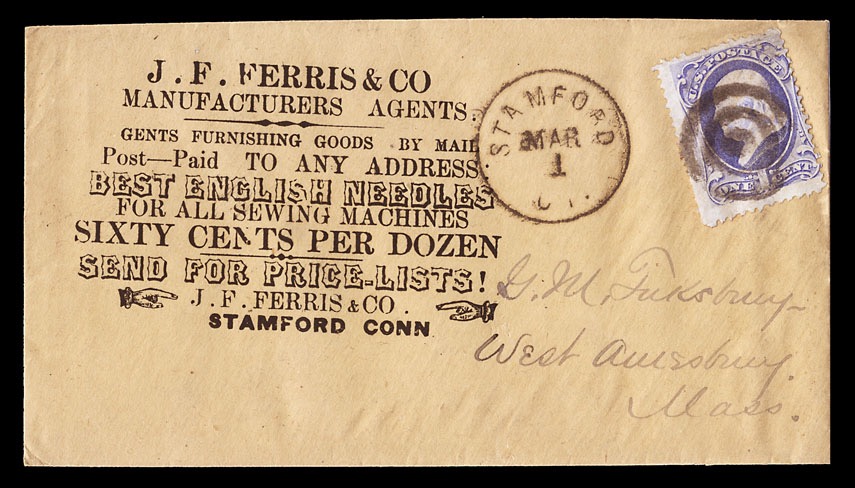 J. F. FERRIS & CO
MANUFACTURERS AGENTS.
GENTS FURNISHING GOODS BY MAIL
Post—Paid TO ANY ADDRESS.
BEST ENGLISH NEEDLES
FOR ALL SEWING MACHINES
SIXTY CENTS PER DOZEN
SEND FOR PRICE-LISTS!
J. F. FERRIS & CO.
STAMFORD CONN
STAMFORD
MAR
1
CT.
U.S. POSTAGE
ONE CENT
G. M. Tuksbury
West Amesbury.
Mass.